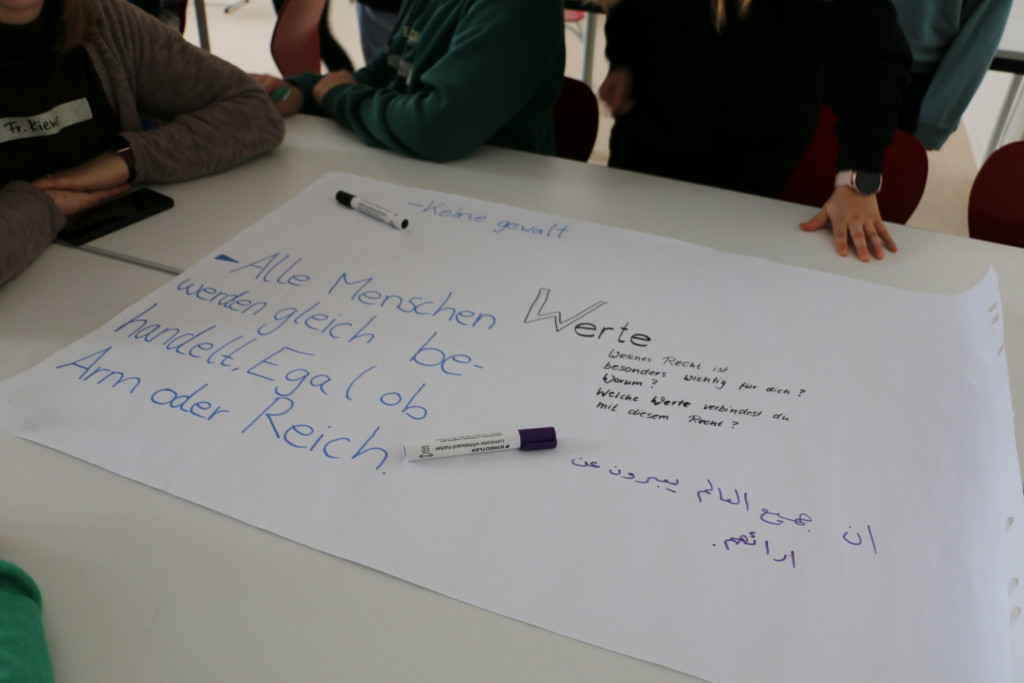 Fr. Kiew
-Keine gewalt
-Alle Menschen
werden gleich be-
handelt. Egal ob
Arm oder Reich.
Werte
Welches Recht ist
besonders wichtig für dich?
Warum?
Welche Werte verbindest du
mit diesem Recht?
STAEDTLER
Lumocolor whiteboard marker
ان جميع العالم يعبرون عن
ارائهم.